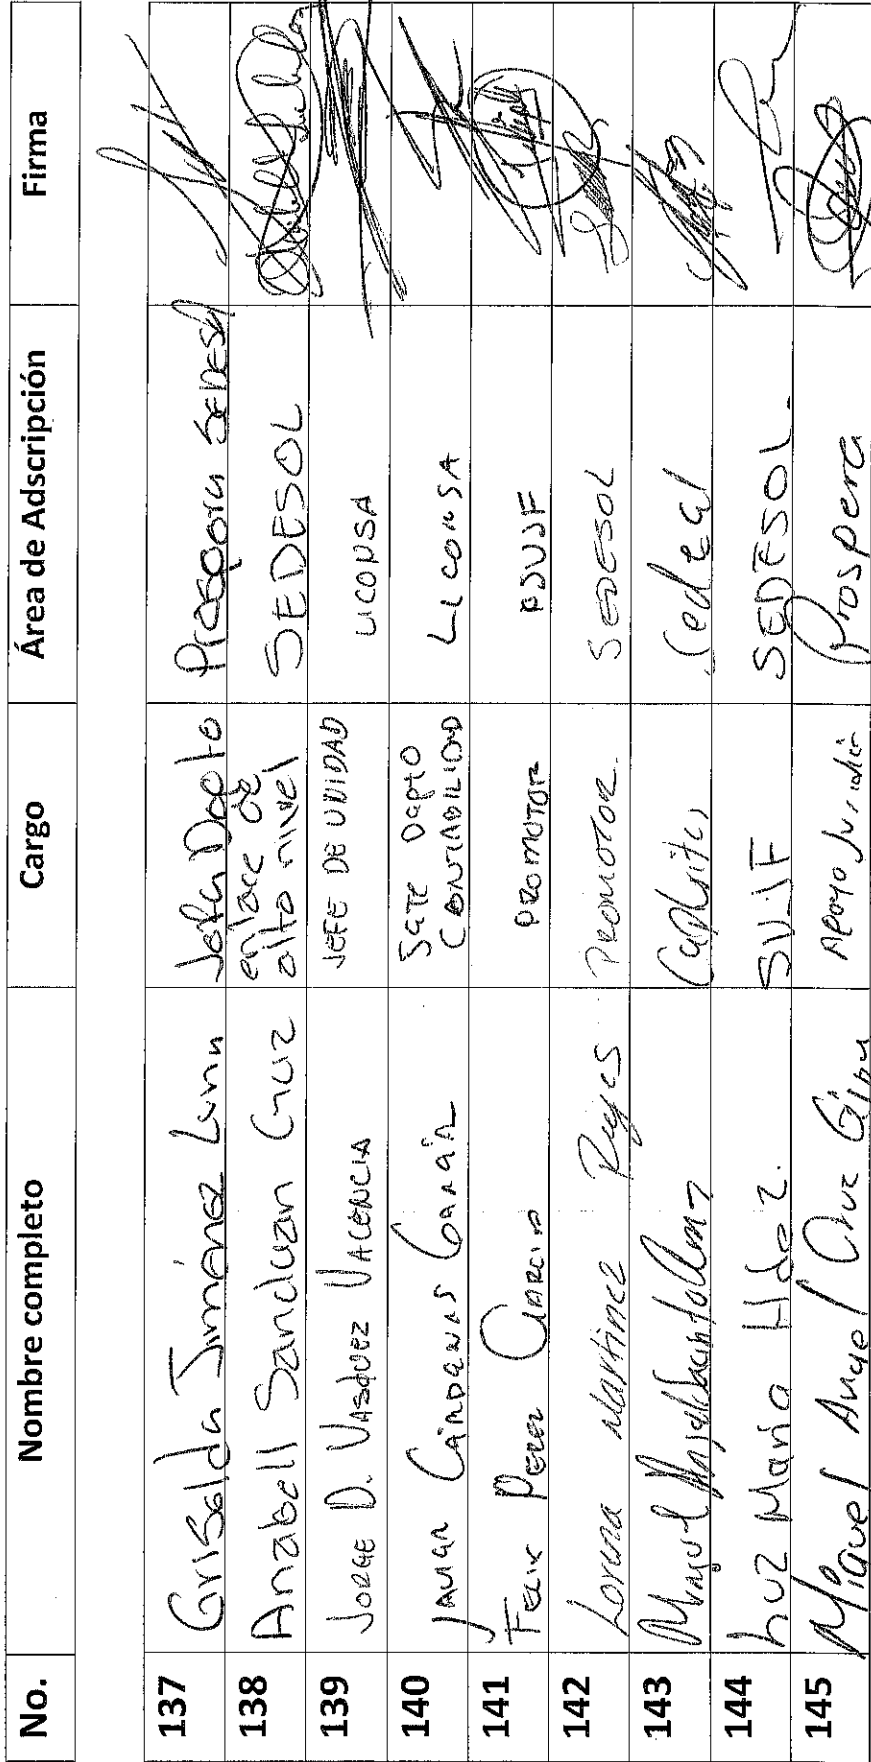 No. Nombre completo Cargo Área de Adscripción Firma
137 Griselda Jiménez Luna Jefa Depto Prospera SEDESOL
138 Anabell Sanduan Cruz enlace de alto nivel SEDESOL
139 JORGE D. VASQUEZ VALENCIA JEFE DE UNIDAD LICONSA
140 JAVIER CÁRDENAS GARCÍA Depto CONTABILIDAD LICONSA
141 FELIX PEREZ GARCIA PROMOTOR PSVJF
142 Lorena Martinez Reyes Promotor. SEDESOL
143 Miguel
144 Luz Maria Hdez. SVJF SEDESOL.
145 Miguel Angel Cruz Apoyo Jurídico Prospera